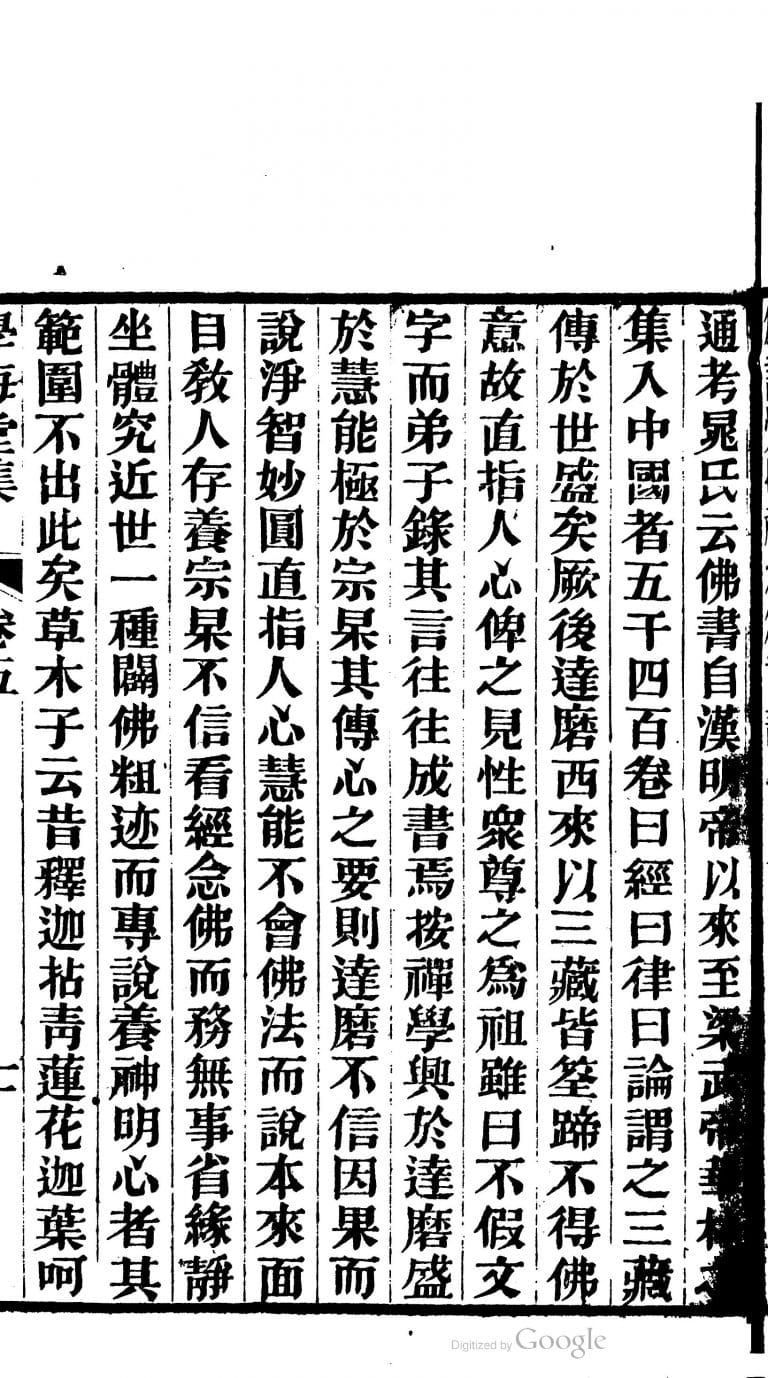 通考晁氏云佛書自漢明帝以來至梁武帝華林之
集入中國者五千四百卷曰經曰律曰論謂之三藏
傳於世盛矣厥後達磨西來以三藏皆筌蹄不得佛
意故直指人心俾之見性衆尊之為祖雖曰不假文
字而弟子錄其言往往成書焉按禪學興於達磨盛
於慧能極於宗杲其傳心之要則達磨不信因果而
說淨智妙圓直指人心慧能不會佛法而說本來面
目敎人存養宗杲不信看經念佛而務無事省緣靜
坐體究近世一種闢佛粗迹而專說養神明心者其
範圍不出此矣草木子云昔釋迦拈靑蓮花迦葉呵
學海堂集
卷五
Digitized by Google